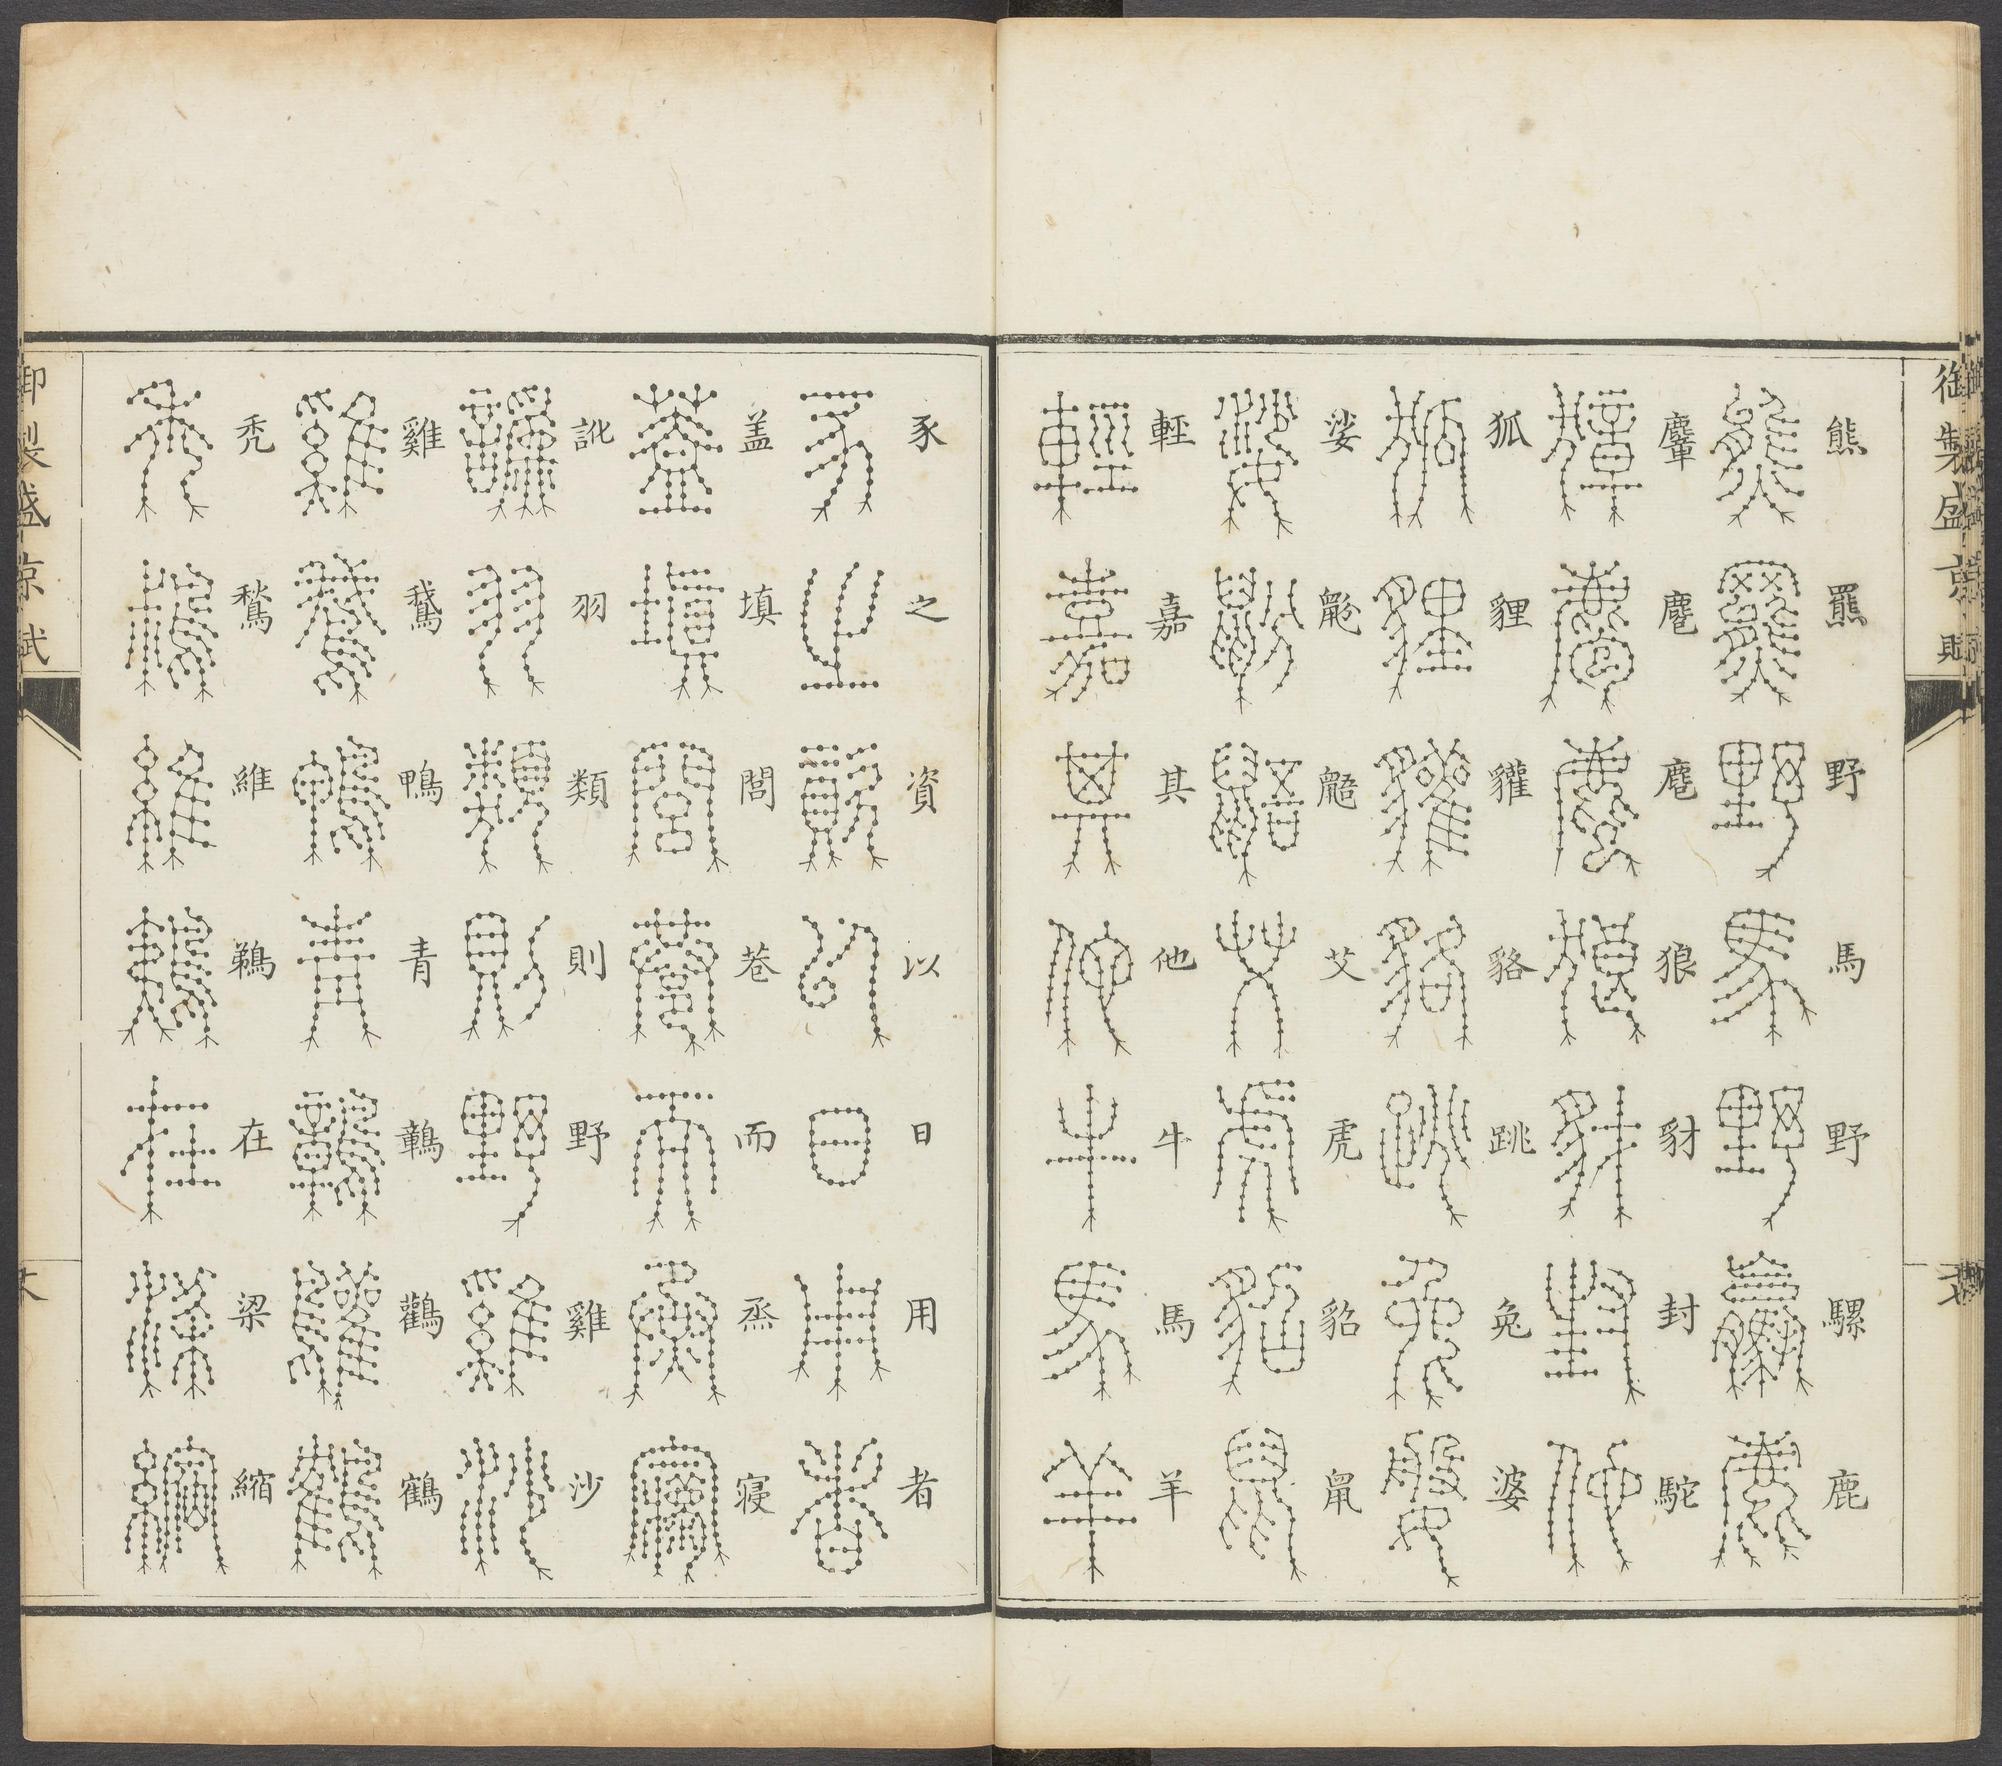 御製盛京賦
熊羆野馬野騾鹿
麞麅麀狼豺封駝
狐貍貛貉跳兔婆
娑䶉䶄艾虎貂鼠
輕嘉其他牛馬羊
豕之資以日用者
蓋填閭巷而烝寝
訛羽類則野雞沙
雞鵝鴨青鶄鸛鶴
禿鶖維鵜在梁縮